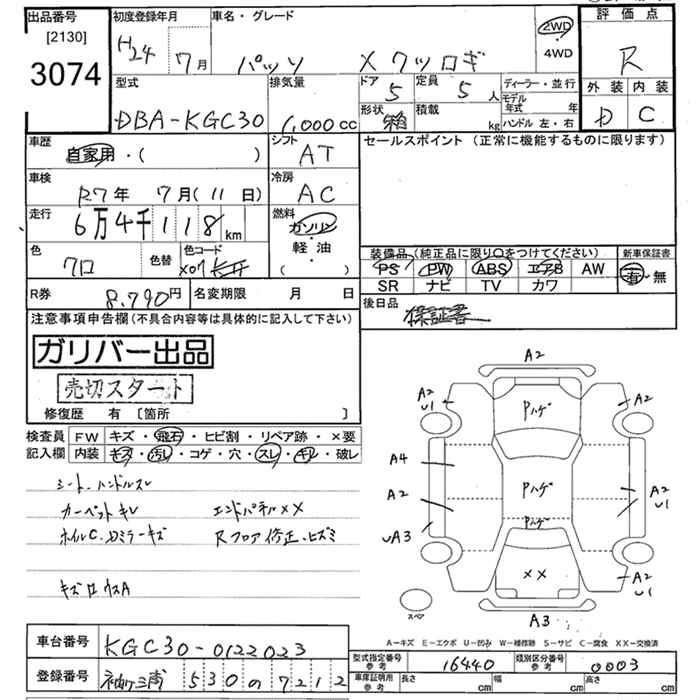 出品番号
[2130]
3074
初度登録年月
H24 7月
車名・グレード
パッソ X クツロギ
2WD
4WD
評価点
R
外装 内装
D C
型式
DBA-KGC30
排気量
1,000cc
ドア 5
定員 5人
形状 箱
積載 kg
ディーラー・並行
モデル年式 年
ハンドル 左・右
車歴
自家用・( )
シフト
AT
セールスポイント (正常に機能するものに限ります)
車検
R7年 7月(11日)
冷房
AC
走行
6万4千118km
燃料
ガソリン
軽・油
( )
色
クロ
色替
色コード
X07
装備品 (純正品に限り〇をつけてください)
新車保証書
PS PW ABS エアB AW
有・無
SR ナビ TV カワ
R券 8,790円
名変期限 月 日
後日品
保証書
注意事項申告欄(不具合内容等は具体的に記入して下さい)
ガリバー出品
売切スタート
修復歴 有 [箇所 ]
検査員
記入欄
FW キズ・飛石・ヒビ割・リペア跡・×要
内装 キズ・汚レ・コゲ・穴・スレ・キレ・破レ
シート、ハンドルスレ
カーペットキレ エンドパネルXX
ホイルC、Dミラーキズ Rフロア修正、ヒズミ
A2
A2
U1
A2
U1
Pハゲ
A4
A2
UA3
Pハゲ
Pハゲ
A2
U1
XX
A2
U1
スペア
A3
A-キズ E-エクボ U-凹み W-補修跡 S-サビ C-腐食 XX-交換済
車台番号
KGC30-0122023
登録番号
530 の 7212
型式指定番号
参考
16440
類別区分番号
参考
0003
車庫証明用
参考
長さ cm
幅 cm
高さ cm